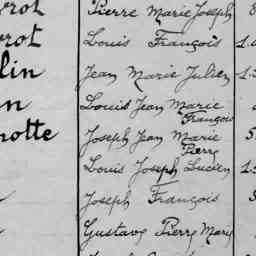 rot Pierre Marie Joseph
rot Louis François
lin Jean Marie Julien
n Louis Jean Marie
François
notte Joseph Jean Marie
Pierre
Louis Joseph Lucien
Joseph François
Gustave Pierre Mary